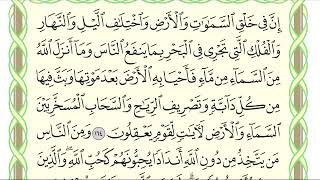 إِنَّ فِي خَلْقِ ٱلسَّمَٰوَٰتِ وَٱلْأَرْضِ وَٱخْتِلَٰفِ ٱلَّيْلِ وَٱلنَّهَارِ
وَٱلْفُلْكِ ٱلَّتِي تَجْرِي فِي ٱلْبَحْرِ بِمَا يَنفَعُ ٱلنَّاسَ وَمَآ أَنزَلَ ٱللَّهُ
مِنَ ٱلسَّمَآءِ مِن مَّآءٍ فَأَحْيَا بِهِ ٱلْأَرْضَ بَعْدَ مَوْتِهَا وَبَثَّ فِيهَا
مِن كُلِّ دَآبَّةٍ وَتَصْرِيفِ ٱلرِّيَٰحِ وَٱلسَّحَابِ ٱلْمُسَخَّرِ بَيْنَ
ٱلسَّمَآءِ وَٱلْأَرْضِ لَأٓيَٰتٍ لِّقَوْمٍ يَعْقِلُونَ ١٦٤ وَمِنَ ٱلنَّاسِ
مَن يَتَّخِذُ مِن دُونِ ٱللَّهِ أَندَادًا يُحِبُّونَهُمْ كَحُبِّ ٱللَّهِ وَٱلَّذِينَ